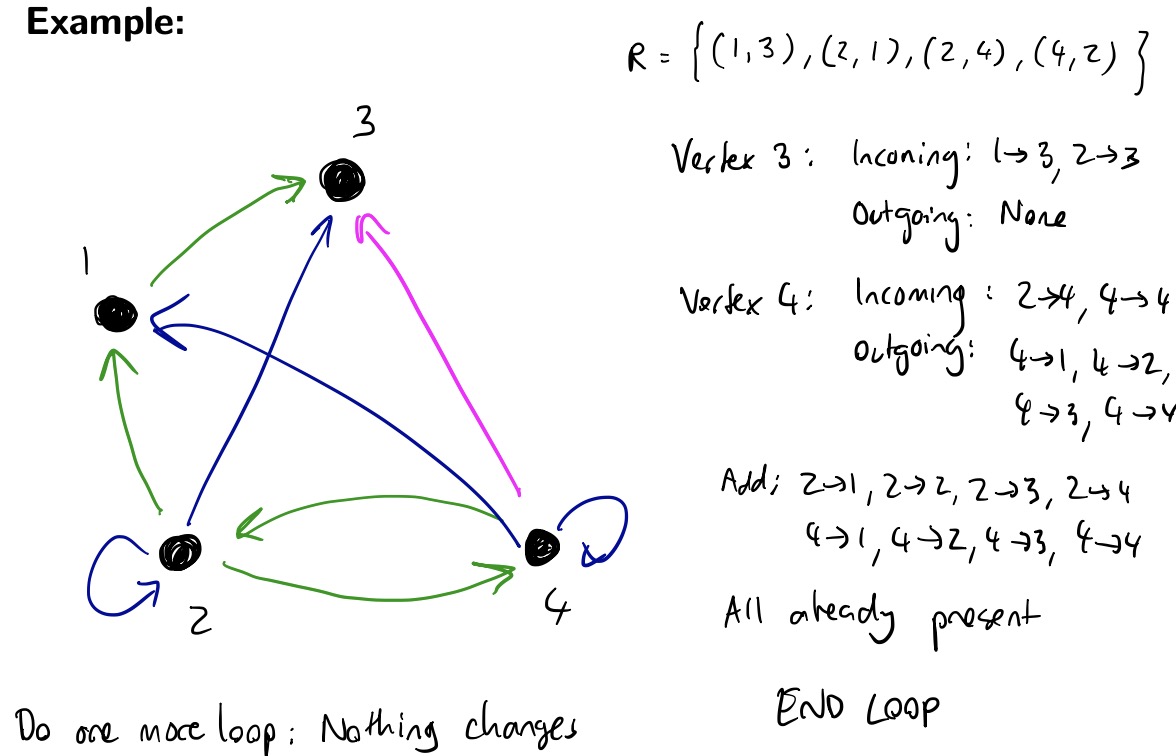 Example:
R = {(1,3),(2,1),(2,4),(4,2)}
3
1
2
4
Vertex 3: Incoming: 1→3, 2→3
Outgoing: None
Vertex 4: Incoming: 2→4, 4→4
Outgoing: 4→1, 4→2,
4→3, 4→4
Add; 2→1, 2→2, 2→3, 2→4
4→1, 4→2, 4→3, 4→4
All already present
END LOOP
Do one more loop: Nothing changes